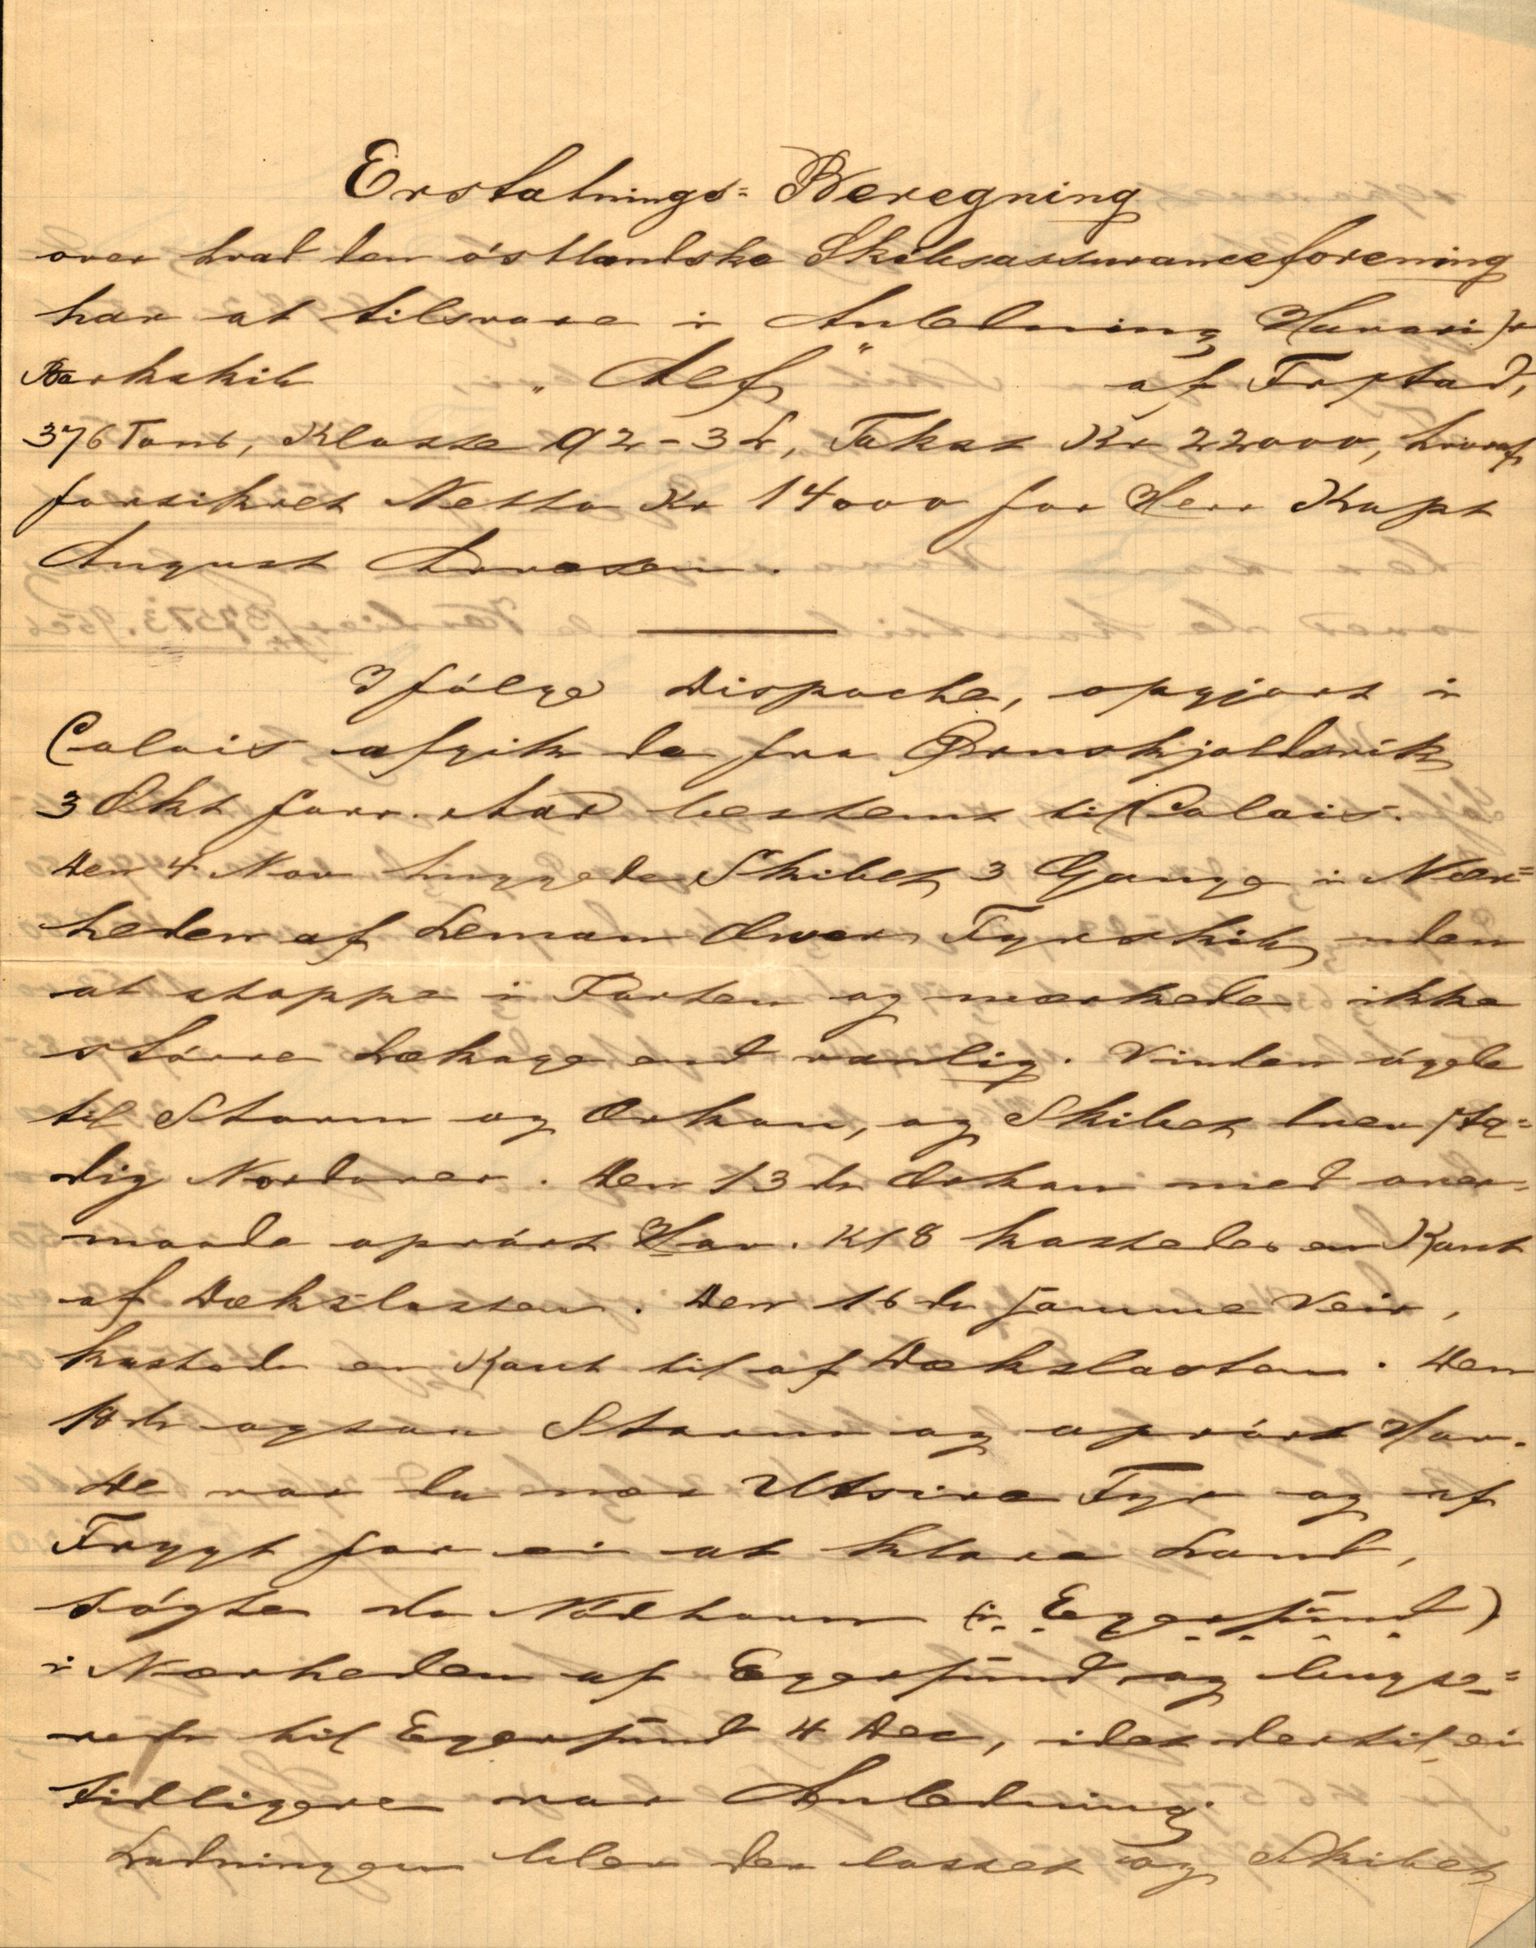 Erstatnings= Beregning
over hvad den östlandske Skibsassuranceforening
har at tilsvare i Anledning Havari pr
Barkskib „Alef" af Frstad,
376 Tons, Klasse A2-3L, Takst Kr 22000, hvoraf
forsikret Netto Kr 14000 for Herr Kapt
August Arvesen.
Ifölge Dispache, opgjort i
Calais afgik de fra Örnskjoldsvik
3 Okt forr. Aar bestemt til Calais.
Den 4 Nov huggede Skibet 3 Gange i Nær=
heden af Leman Ower Fyrskib uden
at stoppe i Farten og mærkede ikke
större Lækage end vanlig. Vinden ögede
til Storm og Orkan, og Skibet drev sta=
dig Nordover. Den 13 de Orkan med over-
maade oprört Hav. Kl 8 kastedes en Kant
af Dækslasten. Den 16 de samme Veir,
kastede en Kant til af Dækslasten. Den
18 de ogsaa Storm og oprört Hav.
De var da nær Utsire Fyr og af
Frygt for ei at klare Land,
sögte de Nödhavn (i Egersund)
i Nærheden af Egersund og bugse=
redes til Egersund 4 Dec, idet dertil ei
tidligere var Anledning.
Ladningen blev der losset og Skibet